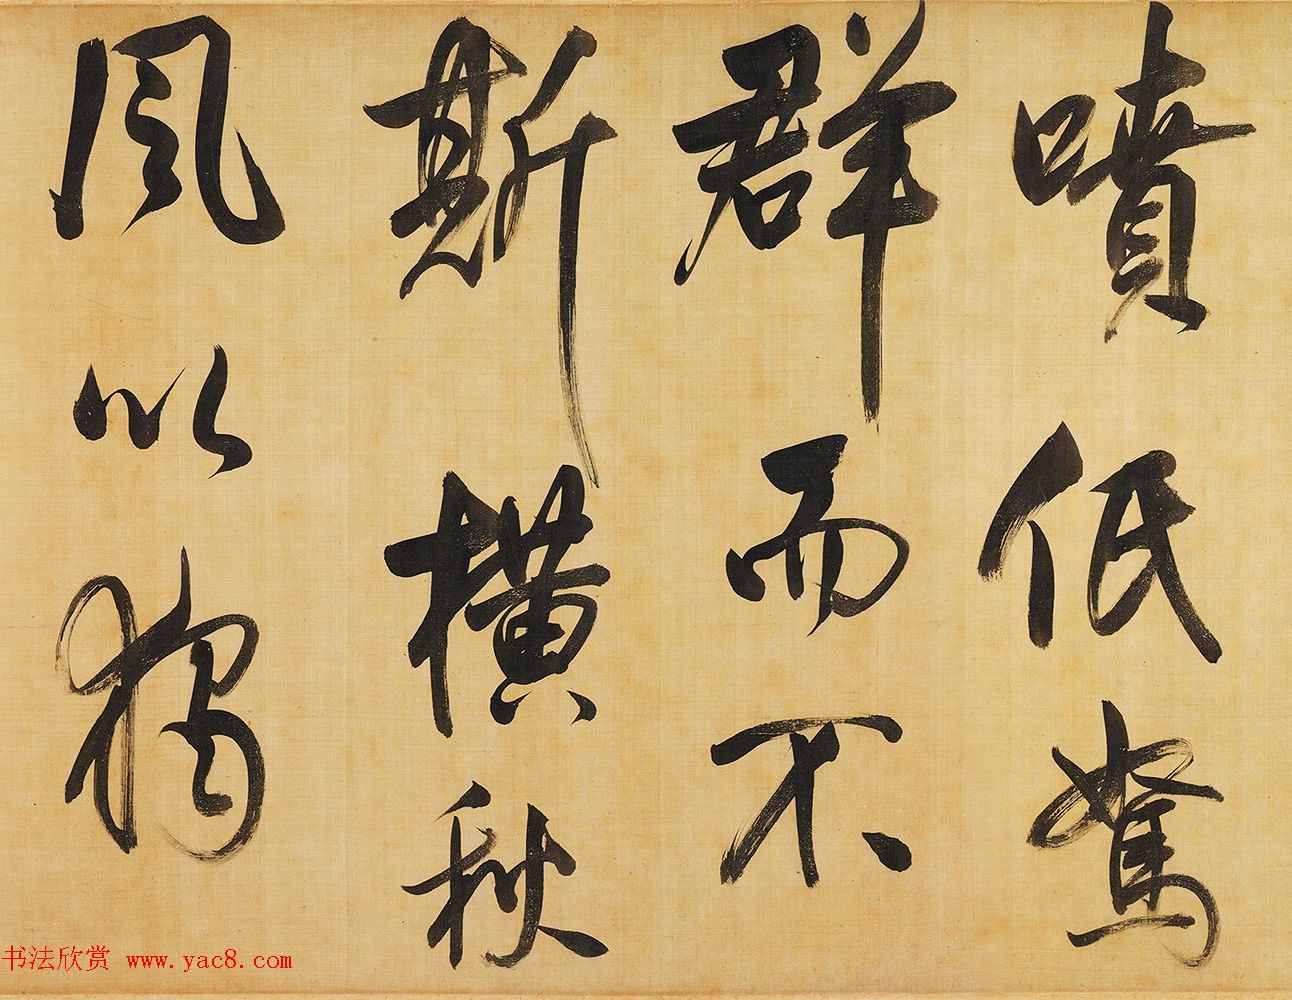 噴低駑
群而不
斯橫秋
風以獨
书法欣赏 www.yac8.com